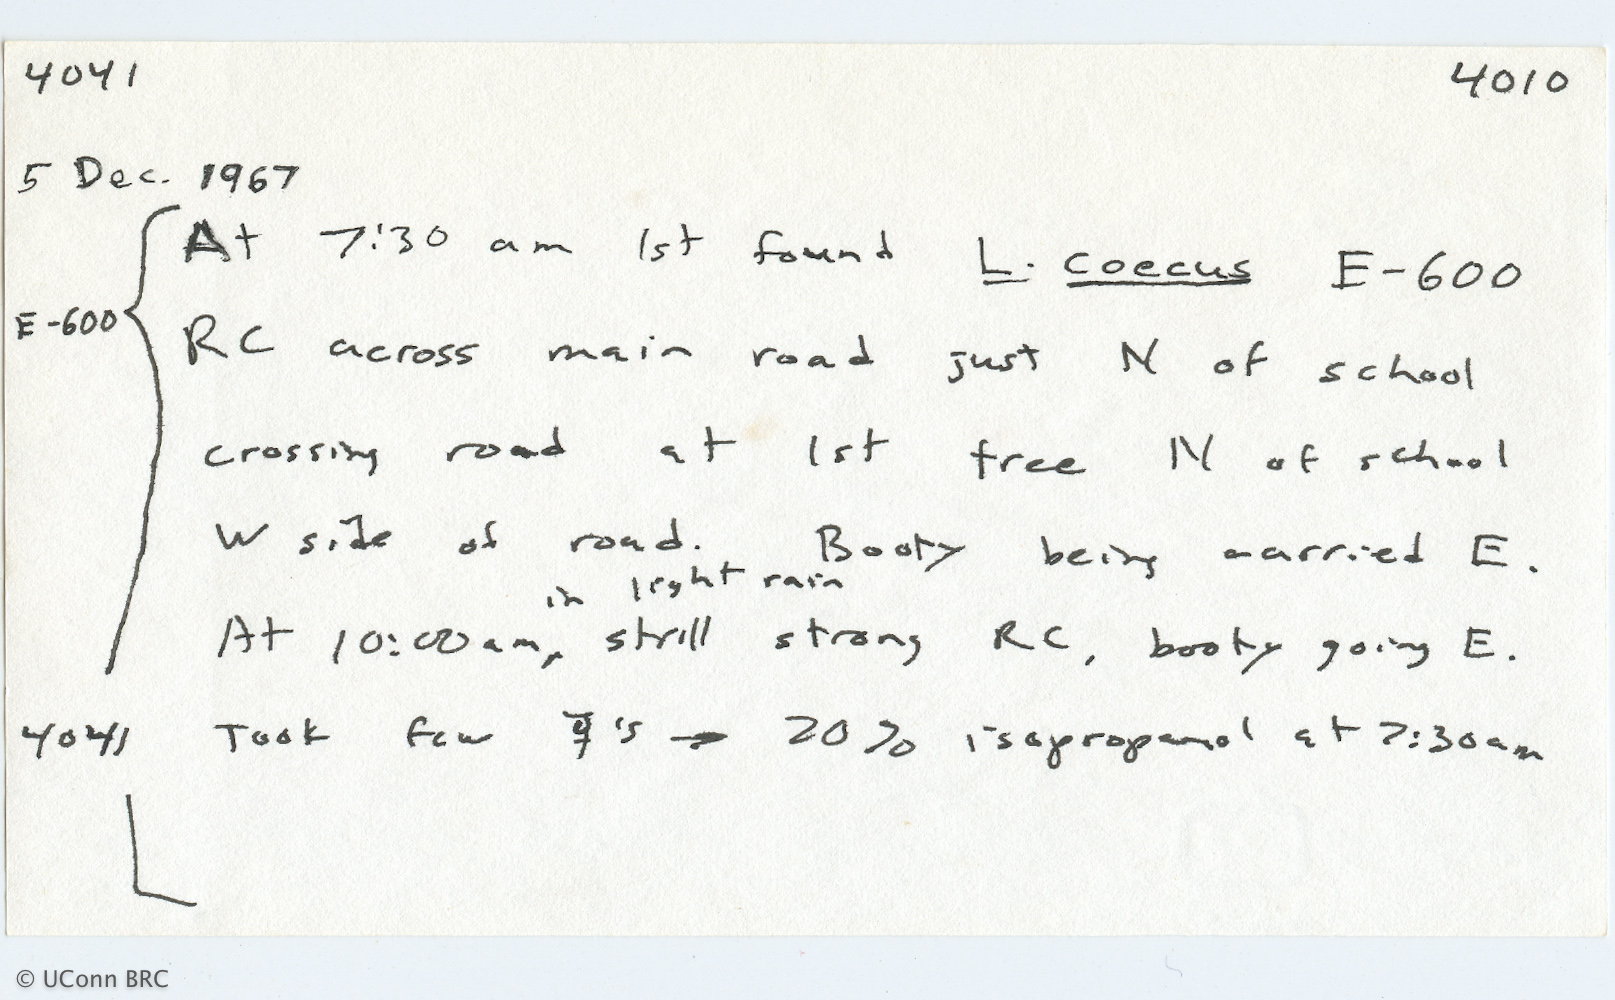 4041 4010
5 Dec. 1967
At 7:30 am 1st found L. coecus E-600
E-600
RC across main road just N of school
crossing road at 1st tree N of school
W side of road. Booty being carried E.
in light rain
At 10:00 am, still strong RC, booty going E.
4041 Took few ☿'s → 20% isopropanol at 7:30am
© UConn BRC